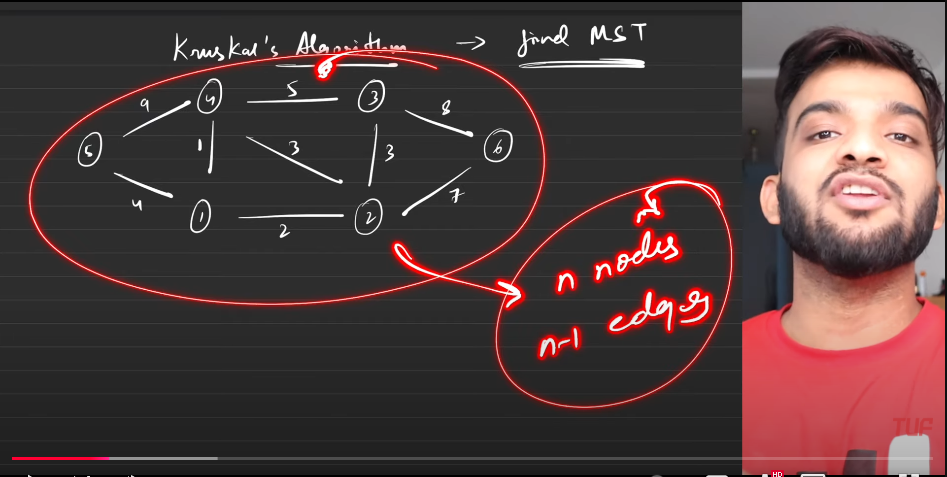 Kruskal's Algorithm → find MST
9 4 5 3 8
5 1 3 3 6
4 1 2 2 7
n nodes
n-1 edges
TUF
HD